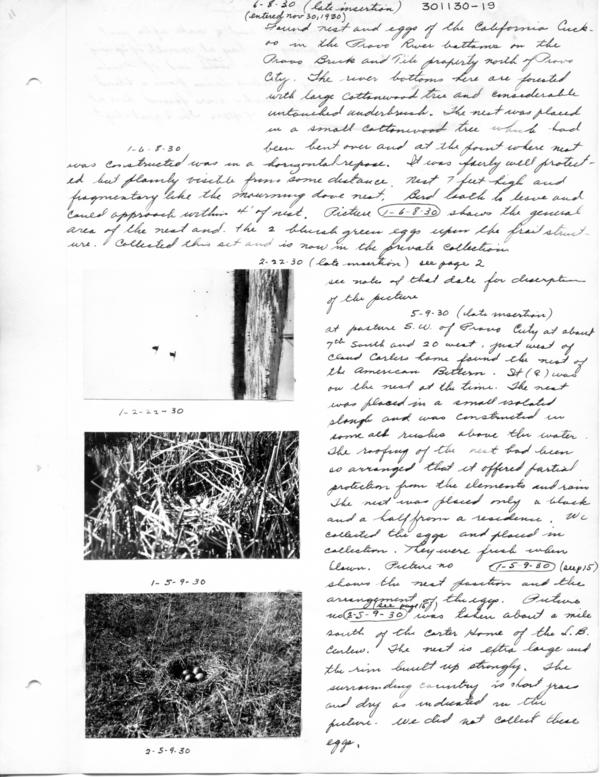 11
6-8-30 (late insertion) 301130-19
(entered nov 30, 1930)
Found nest and eggs of the California Cuck-
oo in the Provo River bottoms on the
Provo Brick and Tile property north of Provo
City. The river bottoms here are forested
with large cottonwood tree and considerable
untouched underbrush. The nest was placed
in a small cottonwood tree which had
1-6-8-30 been bent over and at the point where nest
was constructed was in a horizontal repose. It was fairly well protect-
ed but plainly visible from some distance. Nest 7 feet high and
fragmentary like the mourning dove nest. Bird loath to leave and
could approach within 4' of nest. Picture 1-6-8-30 shows the general
area of the nest and the 2 bluish green eggs upon the frail struct-
ure. Collected this set and is now in the private collection
2-22-30 (late insertion) see page 2
see notes of that date for discription
of the picture
5-9-30 (late insertion)
at pasture S.W. of Provo City at about
7th South and 20 west. just west of
Claud Carters home found the nest of
the American Bittern. It (♀) was
on the nest at the time. The nest
was placed in a small isolated
slough and was constructed in
some alk rushes above the water.
The roofing of the nest had been
so arranged that it offered partial
protection from the elements and rain
The nest was placed only a block
and a half from a residence. We
collected the eggs and placed in
collection. They were fresh when
blown. Picture no 1-5-9-30 (see p 15)
shows the nest position and the
arrangement of the eggs. Picture
(see page 15)
no 2-5-9-30 was taken about a mile
south of the Carter Home of the L.B.
Curlew. The nest is extra large and
the rim built up strongly. The
surrounding country is short grass
and dry as indicated in the
picture. We did not collect these
eggs.
1-2-22-30
1-5-9-30
2-5-9-30